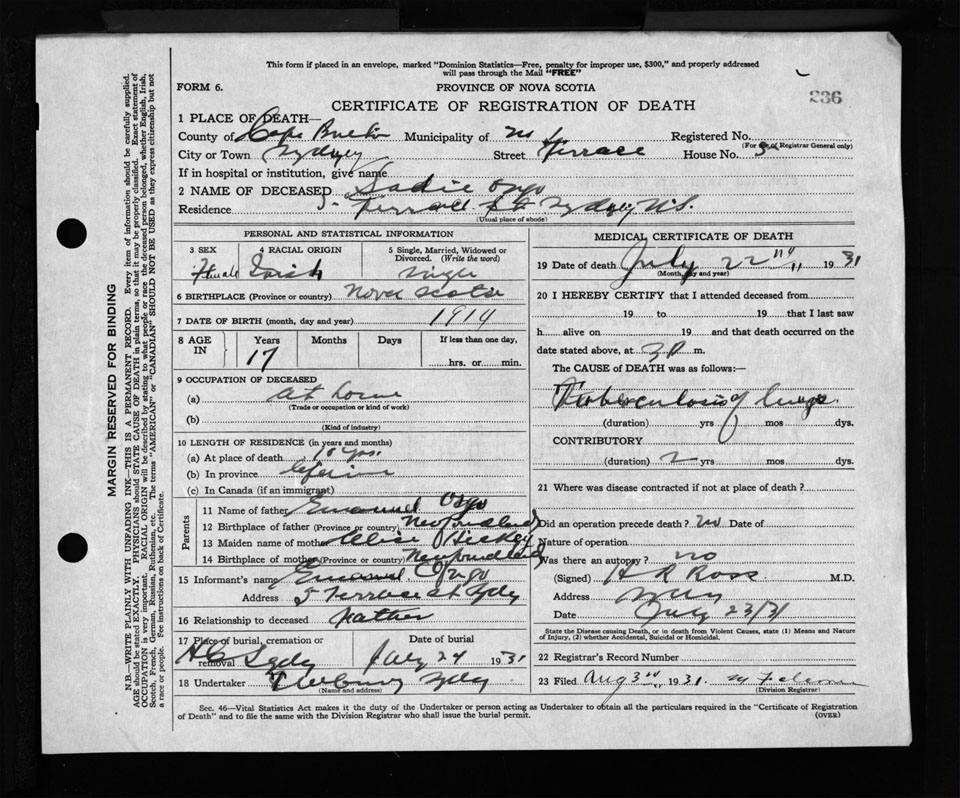 This form if placed in an envelope, marked "Dominion Statistics—Free, penalty for improper use, $300," and properly addressed
will pass through the Mail "FREE"
FORM 6.
PROVINCE OF NOVA SCOTIA
236
CERTIFICATE OF REGISTRATION OF DEATH
1 PLACE OF DEATH—
County of Cape Breton Municipality of Registered No.
(For use of Registrar General only)
City or Town Sydney Street Terrace House No. 5
If in hospital or institution, give name
2 NAME OF DECEASED Sadie Osgo
Residence 5 Terrace St Sydney N.S.
(Usual place of abode)
MARGIN RESERVED FOR BINDING
N.B.—WRITE PLAINLY WITH UNFADING INK—THIS IS A PERMANENT RECORD. Every item of information should be carefully supplied.
AGE should be stated EXACTLY. PHYSICIANS should STATE CAUSE OF DEATH in plain terms, so that it may be properly classified. Exact statement of
OCCUPATION is very important. RACIAL ORIGIN will be described by stating to what people or race the deceased person belonged, whether English, Irish,
Scotch, French, German, Russian, Ruthenian, etc. The terms "AMERICAN" or "CANADIAN" SHOULD NOT BE USED as they express citizenship but not
a race or people. Fee instructions on back of Certificate.
PERSONAL AND STATISTICAL INFORMATION
3 SEX 4 RACIAL ORIGIN 5 Single, Married, Widowed or
Divorced. (Write the word)
Female Irish Single
6 BIRTHPLACE (Province or country) Nova Scotia
7 DATE OF BIRTH (month, day and year) 1914
8 AGE IN Years Months Days If less than one day,
17 hrs. or min.
9 OCCUPATION OF DECEASED
(a) At home
(Trade or occupation or kind of work)
(b)
(Kind of industry)
10 LENGTH OF RESIDENCE (in years and months)
(a) At place of death yrs.
(b) In province Lifetime
(c) In Canada (if an immigrant)
Parents
11 Name of father Emanuel Osgo
12 Birthplace of father (Province or country) Newfoundland
13 Maiden name of mother Alice Hickey
14 Birthplace of mother (Province or country) Newfoundland
15 Informant's name Emanuel Osgo
Address 5 Terrace St Sydney
16 Relationship to deceased Father
17 Place of burial, cremation or
removal Date of burial
Sydney July 24 1931
18 Undertaker Sydney
(Name and address)
MEDICAL CERTIFICATE OF DEATH
19 Date of death July 22nd 1931
(Month, day and year)
20 I HEREBY CERTIFY that I attended deceased from
19 to 19 that I last saw
h alive on 19 and that death occurred on
the date stated above, at m.
The CAUSE of DEATH was as follows:—
Tuberculosis of lungs.
(duration) yrs mos dys.
CONTRIBUTORY
(duration) 2 yrs mos dys.
21 Where was disease contracted if not at place of death?
Did an operation precede death? no Date of
Nature of operation
Was there an autopsy? no
(Signed) H R Ross M.D.
Address Sydney
Date July 23/31
State the Disease causing Death, or in death from Violent Causes, state (1) Means and Nature
of Injury, (2) whether Accidental, Suicidal or Homicidal.
22 Registrar's Record Number
23 Filed Aug 3rd 1931
(Division Registrar)
Sec. 46—Vital Statistics Act makes it the duty of the Undertaker or person acting as Undertaker to obtain all the particulars required in the "Certificate of Registration
of Death" and to file the same with the Division Registrar who shall issue the burial permit.
(OVER)